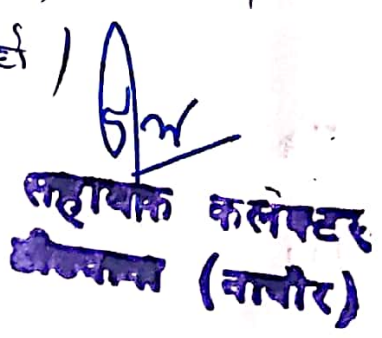 ।
सहायक कलेक्टर
डीडवाना (नागौर)